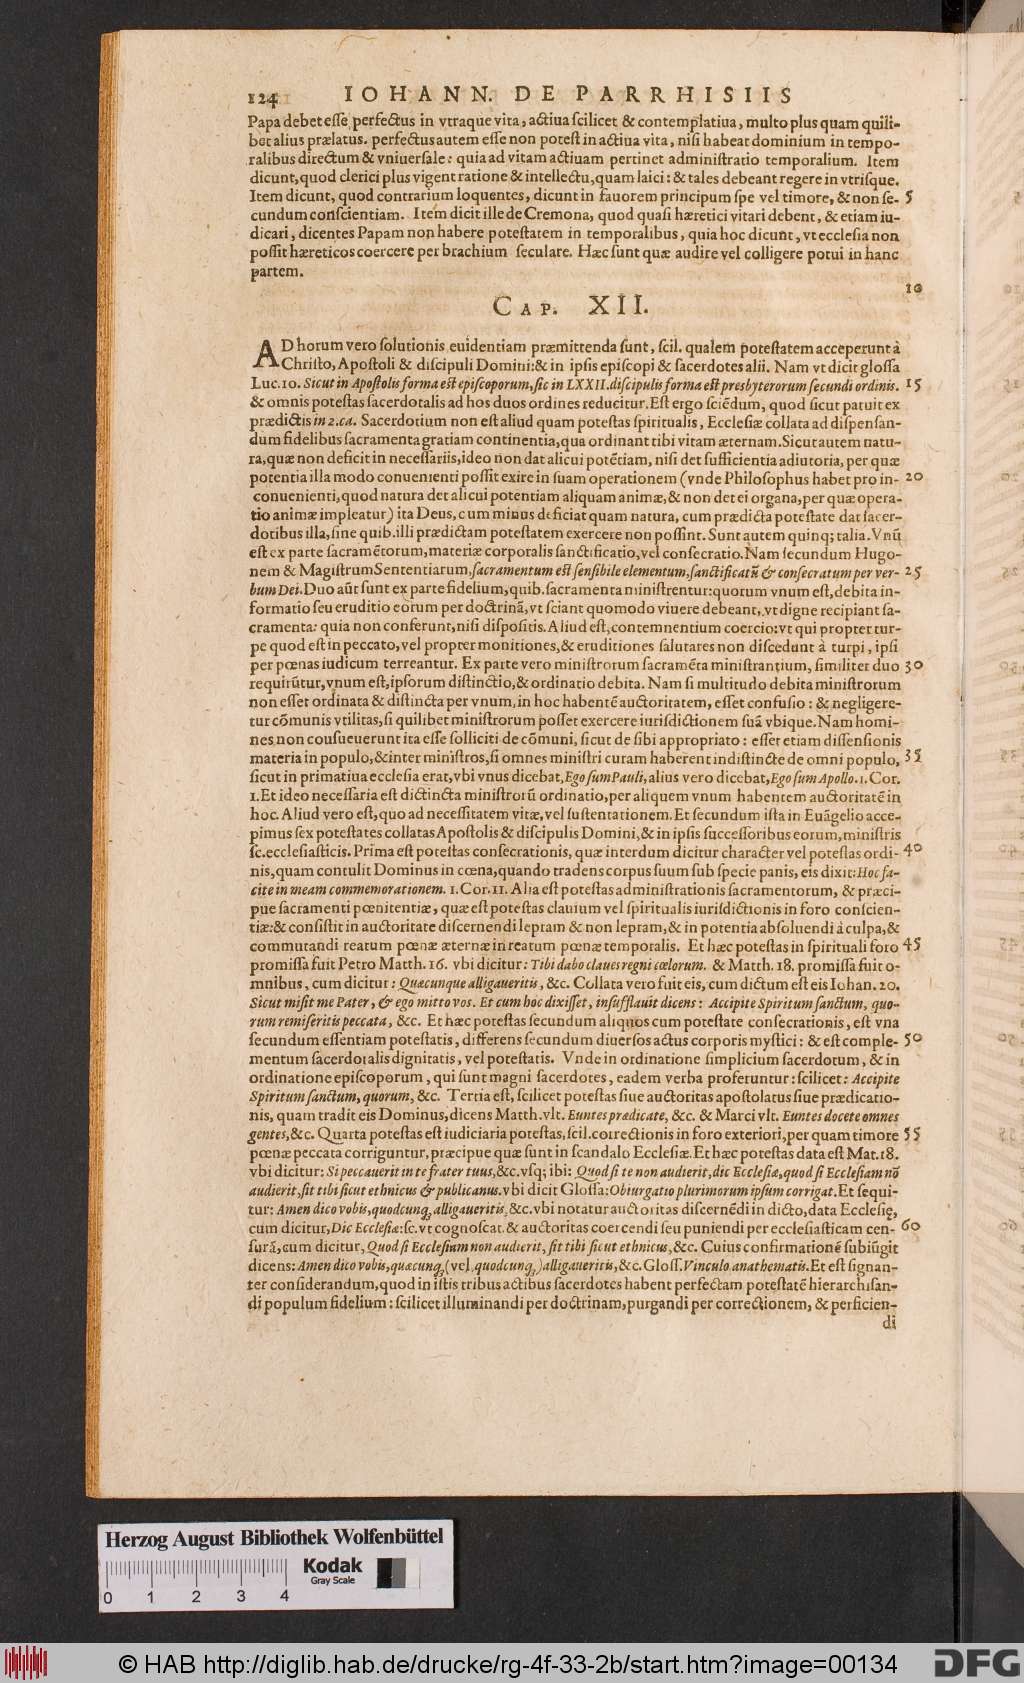 124 IOHANN. DE PARRHISIIS
Papa debet eſſe perfectus in vtraque vita, actiua ſcilicet & contemplatiua, multo plus quam quili-
bet alius prælatus. perfectus autem eſſe non poteſt in actiua vita, niſi habeat dominium in tempo-
ralibus directum & vniuerſale: quia ad vitam actiuam pertinet adminiſtratio temporalium. Item
dicunt, quod clerici plus vigent ratione & intellectu, quam laici: & tales debeant regere in vtriſque.
Item dicunt, quod contrarium loquentes, dicunt in fauorem principum ſpe vel timore, & non ſe- 5
cundum conſcientiam. Item dicit ille de Cremona, quod quaſi hæretici vitari debent, & etiam iu-
dicari, dicentes Papam non habere poteſtatem in temporalibus, quia hoc dicunt, vt eccleſia non
poſſit hæreticos coercere per brachium ſeculare. Hæc ſunt quæ audire vel colligere potui in hanc
partem.
10
CAP. XII.
AD horum vero ſolutionis euidentiam præmittenda ſunt, ſcil. qualem poteſtatem acceperunt à
Chriſto, Apoſtoli & diſcipuli Domini: & in ipſis epiſcopi & ſacerdotes alii. Nam vt dicit gloſſa
Luc. 10. Sicut in Apoſtolis forma eſt epiſcoporum, ſic in LXXII. diſcipulis forma eſt presbyterorum ſecundi ordinis. 15
& omnis poteſtas ſacerdotalis ad hos duos ordines reducitur. Eſt ergo ſciẽdum, quod ſicut patuit ex
prædictis in 2. ca. Sacerdotium non eſt aliud quam poteſtas ſpiritualis, Eccleſiæ collata ad diſpenſan-
dum fidelibus ſacramenta gratiam continentia, qua ordinant tibi vitam æternam. Sicut autem natu-
ra, quæ non deficit in neceſſariis, ideo non dat alicui potẽtiam, niſi det ſufficientia adiutoria, per quæ
potentia illa modo conuenienti poſſit exire in ſuam operationem (vnde Philoſophus habet pro in- 20
conuenienti, quod natura det alicui potentiam aliquam animæ, & non det ei organa, per quæ opera-
tio animæ impleatur) ita Deus, cum minus deficiat quam natura, cum prædicta poteſtate dat ſacer-
dotibus illa, ſine quib. illi prædictam poteſtatem exercere non poſſint. Sunt autem quinq; talia. Vnũ
eſt ex parte ſacramẽtorum, materiæ corporalis ſanctificatio, vel conſecratio. Nam ſecundum Hugo-
nem & Magiſtrum Sententiarum, ſacramentum eſt ſenſibile elementum, ſanctificatũ & conſecratum per ver- 25
bum Dei. Duo aũt ſunt ex parte fidelium, quib. ſacramenta miniſtrentur: quorum vnum eſt, debita in-
formatio ſeu eruditio eorum per doctrinã, vt ſciant quomodo viuere debeant, vt digne recipiant ſa-
cramenta: quia non conferunt, niſi diſpoſitis. Aliud eſt, contemnentium coercio: vt qui propter tur-
pe quod eſt in peccato, vel propter monitiones, & eruditiones ſalutares non diſcedunt à turpi, ipſi
per pœnas iudicum terreantur. Ex parte vero miniſtrorum ſacramẽta miniſtrantium, ſimiliter duo 30
requirũtur, vnum eſt, ipſorum diſtinctio, & ordinatio debita. Nam ſi multitudo debita miniſtrorum
non eſſet ordinata & diſtincta per vnum, in hoc habentẽ auctoritatem, eſſet confuſio: & negligere-
tur cõmunis vtilitas, ſi quilibet miniſtrorum poſſet exercere iuriſdictionem ſuã vbique. Nam homi-
nes non couſueuerunt ita eſſe ſolliciti de cõmuni, ſicut de ſibi appropriato: eſſet etiam diſſenſionis
materia in populo, & inter miniſtros, ſi omnes miniſtri curam haberent indiſtincte de omni populo, 35
ſicut in primatiua eccleſia erat, vbi vnus dicebat, Ego ſum Pauli, alius vero dicebat, Ego ſum Apollo. 1. Cor.
1. Et ideo neceſſaria eſt dictincta miniſtrorũ ordinatio, per aliquem vnum habentem auctoritatẽ in
hoc. Aliud vero eſt, quo ad neceſſitatem vitæ, vel ſuſtentationem. Et ſecundum iſta in Euãgelio acce-
pimus ſex poteſtates collatas Apoſtolis & diſcipulis Domini, & in ipſis ſucceſſoribus eorum, miniſtris
ſc. eccleſiaſticis. Prima eſt poteſtas conſecrationis, quæ interdum dicitur character vel poteſtas ordi- 40
nis, quam contulit Dominus in cœna, quando tradens corpus ſuum ſub ſpecie panis, eis dixit: Hoc fa-
cite in meam commemorationem. 1. Cor. 11. Alia eſt poteſtas adminiſtrationis ſacramentorum, & præci-
pue ſacramenti pœnitentiæ, quæ eſt poteſtas clauium vel ſpiritualis iuriſdictionis in foro conſcien-
tiæ: & conſiſtit in auctoritate diſcernendi lepram & non lepram, & in potentia abſoluendi à culpa, &
commutandi reatum pœnæ æternæ in reatum pœnæ temporalis. Et hæc poteſtas in ſpirituali foro 45
promiſſa fuit Petro Matth. 16. vbi dicitur: Tibi dabo claues regni cœlorum. & Matth. 18. promiſſa fuit o-
mnibus, cum dicitur: Quæcunque alligaueritis, &c. Collata vero fuit eis, cum dictum eſt eis Iohan. 20.
Sicut miſit me Pater, & ego mitto vos. Et cum hoc dixiſſet, inſufflauit dicens: Accipite Spiritum ſanctum, quo-
rum remiſeritis peccata, &c. Et hæc poteſtas ſecundum aliquos cum poteſtate conſecrationis, eſt vna
ſecundum eſſentiam poteſtatis, differens ſecundum diuerſos actus corporis myſtici: & eſt comple- 50
mentum ſacerdotalis dignitatis, vel poteſtatis. Vnde in ordinatione ſimplicium ſacerdotum, & in
ordinatione epiſcoporum, qui ſunt magni ſacerdotes, eadem verba proferuntur: ſcilicet: Accipite
Spiritum ſanctum, quorum, &c. Tertia eſt, ſcilicet poteſtas ſiue auctoritas apoſtolatus ſiue prædicatio-
nis, quam tradit eis Dominus, dicens Matth. vlt. Euntes prædicate, &c. & Marci vlt. Euntes docete omnes
gentes, &c. Quarta poteſtas eſt iudiciaria poteſtas, ſcil. correctionis in foro exteriori, per quam timore 55
pœnæ peccata corriguntur, præcipue quæ ſunt in ſcandalo Eccleſiæ. Et hæc poteſtas data eſt Mat. 18.
vbi dicitur: Si peccauerit in te frater tuus, &c. vſq; ibi: Quod ſi te non audierit, dic Eccleſiæ, quod ſi Eccleſiam nõ
audierit, ſit tibi ſicut ethnicus & publicanus. vbi dicit Gloſſa: Obiurgatio plurimorum ipſum corrigat. Et ſequi-
tur: Amen dico vobis, quodcunq; alligaueritis, &c. vbi notatur auctoritas diſcernẽdi in dicto, data Eccleſię,
cum dicitur, Dic Eccleſiæ: ſc. vt cognoſcat. & auctoritas coercendi ſeu puniendi per eccleſiaſticam cen- 60
ſurã, cum dicitur, Quod ſi Eccleſiam non audierit, ſit tibi ſicut ethnicus, &c. Cuius confirmationẽ ſubiũgit
dicens: Amen dico vobis, quæcunq; (vel, quodcunq;) alligaueritis, &c. Gloſſ. Vinculo anathematis. Et eſt ſignan-
ter conſiderandum, quod in iſtis tribus actibus ſacerdotes habent perfectam poteſtatẽ hierarchiſan-
di populum fidelium: ſcilicet illuminandi per doctrinam, purgandi per correctionem, & perficien-
di
Herzog August Bibliothek Wolfenbüttel
Kodak
Gray Scale
0 1 2 3 4
© HAB http://diglib.hab.de/drucke/rg-4f-33-2b/start.htm?image=00134
DFG